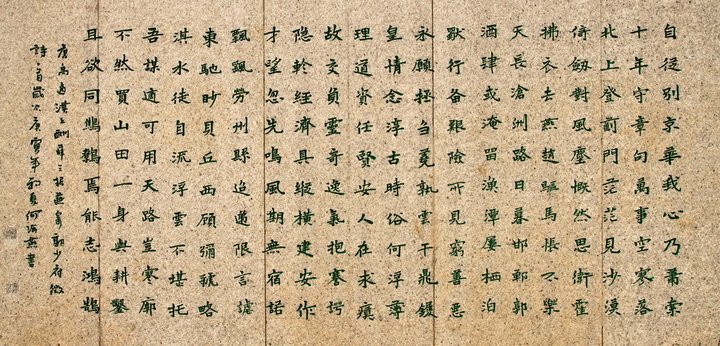 自從別京華我心乃蕭索
十年守章句萬事空寥落
北上登薊門茫茫見沙漠
倚劒對風塵慨然思衛霍
拂衣去燕趙驅馬悵不樂
天長滄洲路日暮邯鄲郭
酒肆或淹留漁潭屢栖泊
獸行备艱險所見窮善惡
永願拯芻蕘孰雲干鼎鑊
皇情念淳古時俗何浮薄
理道資任賢安人在求瘼
故交負靈奇逸氣抱謇諤
隐軫經濟具縱橫建安作
才望忽先鳴風期無宿諾
飄颻勞州縣迢遞限言謔
東馳眇貝丘西顧彌虢略
淇水徒自流浮雲不堪托
吾謀適可用天路豈寥廓
不然買山田一身與耕鑿
且欲同鷦鷯焉能志鴻鵠
唐高適淇上酬薛三据兼寄郭少府微
詩一首歲次庚寅年初夏何燕書